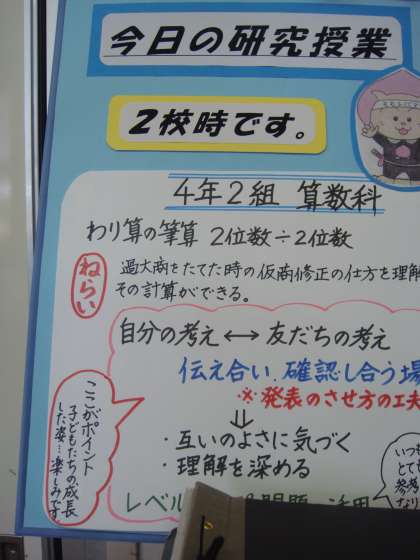 今日の研究授業
2校時です。
4年2組 算数科
わり算の筆算 2位数÷2位数
ねらい
過大商をたてた時の仮商修正の仕方を理解
その計算ができる。
自分の考え ↔ 友だちの考え
伝え合い、確認し合う場
※発表のさせ方の工夫
⇓
・互いのよさに気づく
・理解を深める
ここがポイント
子どもたちの成長
した姿…楽しみです。
いつも
とて
参考
なり
レベル 問題 活用